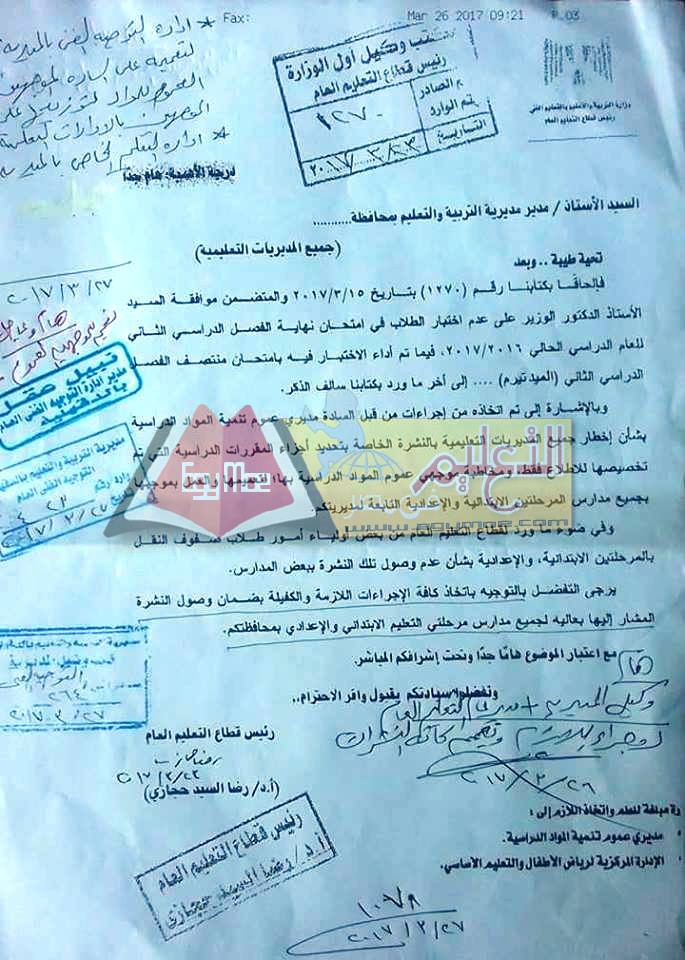 Fax:
Mar 26 2017 09:21
P.03
* ادارة التوجيه الفنى بالمديرية
مكتب وكيل أول الوزارة
رئيس قطاع التعليم العام
الصادر
الوارد
١٢٧٠
التاريخ
٢٠١٧/٣/٢٣
وزارة التربية والتعليم والتعليم الفني
رئيس قطاع التعليم العام
درجة الأهمية: هام جدا
السيد الأستاذ / مدير مديرية التربية والتعليم بمحافظة...........
(جميع المديريات التعليمية)
تحية طيبة .. وبعد
فإلحاقًا بكتابنا رقم (١٢٧٠) بتاريخ ٢٠١٧/٣/١٥ والمتضمن موافقة السيد
الأستاذ الدكتور الوزير على عدم اختبار الطلاب في امتحان نهاية الفصل الدراسي الثاني
للعام الدراسي الحالي ٢٠١٧/٢٠١٦، فيما تم أداء الاختبار فيه بامتحان منتصف الفصل
الدراسي الثاني (الميدتيرم) .... إلى أخر ما ورد بكتابنا سالف الذكر.
وبالإشارة إلى تم اتخاذه من إجراءات من قبل السادة مديري عموم تنمية المواد الدراسية
بشأن إخطار جميع المديريات التعليمية بالنشرة الخاصة بتحديد أجزاء المقررات الدراسية التي تم
تخصيصها للاطلاع فقط، ومخاطبة موجهي عموم المواد الدراسية بها؛ لتعميمها والعمل بموجبها
بجميع مدارس المرحلتين الابتدائية والإعدادية التابعة لمديريتكم.
وفي ضوء ما ورد لقطاع التعليم العام من بعض أولياء أمور طلاب صفوف النقل
بالمرحلتين الابتدائية، والإعدادية بشأن عدم وصول تلك النشرة ببعض المدارس.
يرجى التفضل بالتوجيه باتخاذ كافة الإجراءات اللازمة والكفيلة بضمان وصول النشرة
المشار إليها بعاليه لجميع مدارس مرحلتي التعليم الابتدائي والإعدادي بمحافظتكم.
مع اعتبار الموضوع هامًا جدًا وتحت إشرافكم المباشر.
وتفضلوا سيادتكم بقبول وافر الاحترام..
رئيس قطاع التعليم العام
(أ.د/ رضا السيد حجازي)
٢٠١٧/٣/٢٧
نبيل عقل
مدير ادارة التوجيه الفنى العام
بالدقهلية
مديرية التربية والتعليم
التوجيه الفنى العام
التعليم
بوابة
www.egymoe.com
Egy Moe
٢٠١٧/٣/٢٦
صورة مبلغة للعلم واتخاذ اللازم إلى:
• مديري عموم تنمية المواد الدراسية.
• الإدارة المركزية لرياض الأطفال والتعليم الأساسي.
رئيس قطاع التعليم العام
أ.د/ رضا السيد حجازي
١٠٧٨
٢٠١٧/٣/٢٧